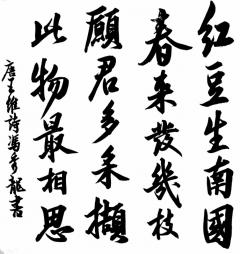 紅豆生南國
春來發幾枝
願君多采擷
此物最相思
唐王維詩馮秀龍書